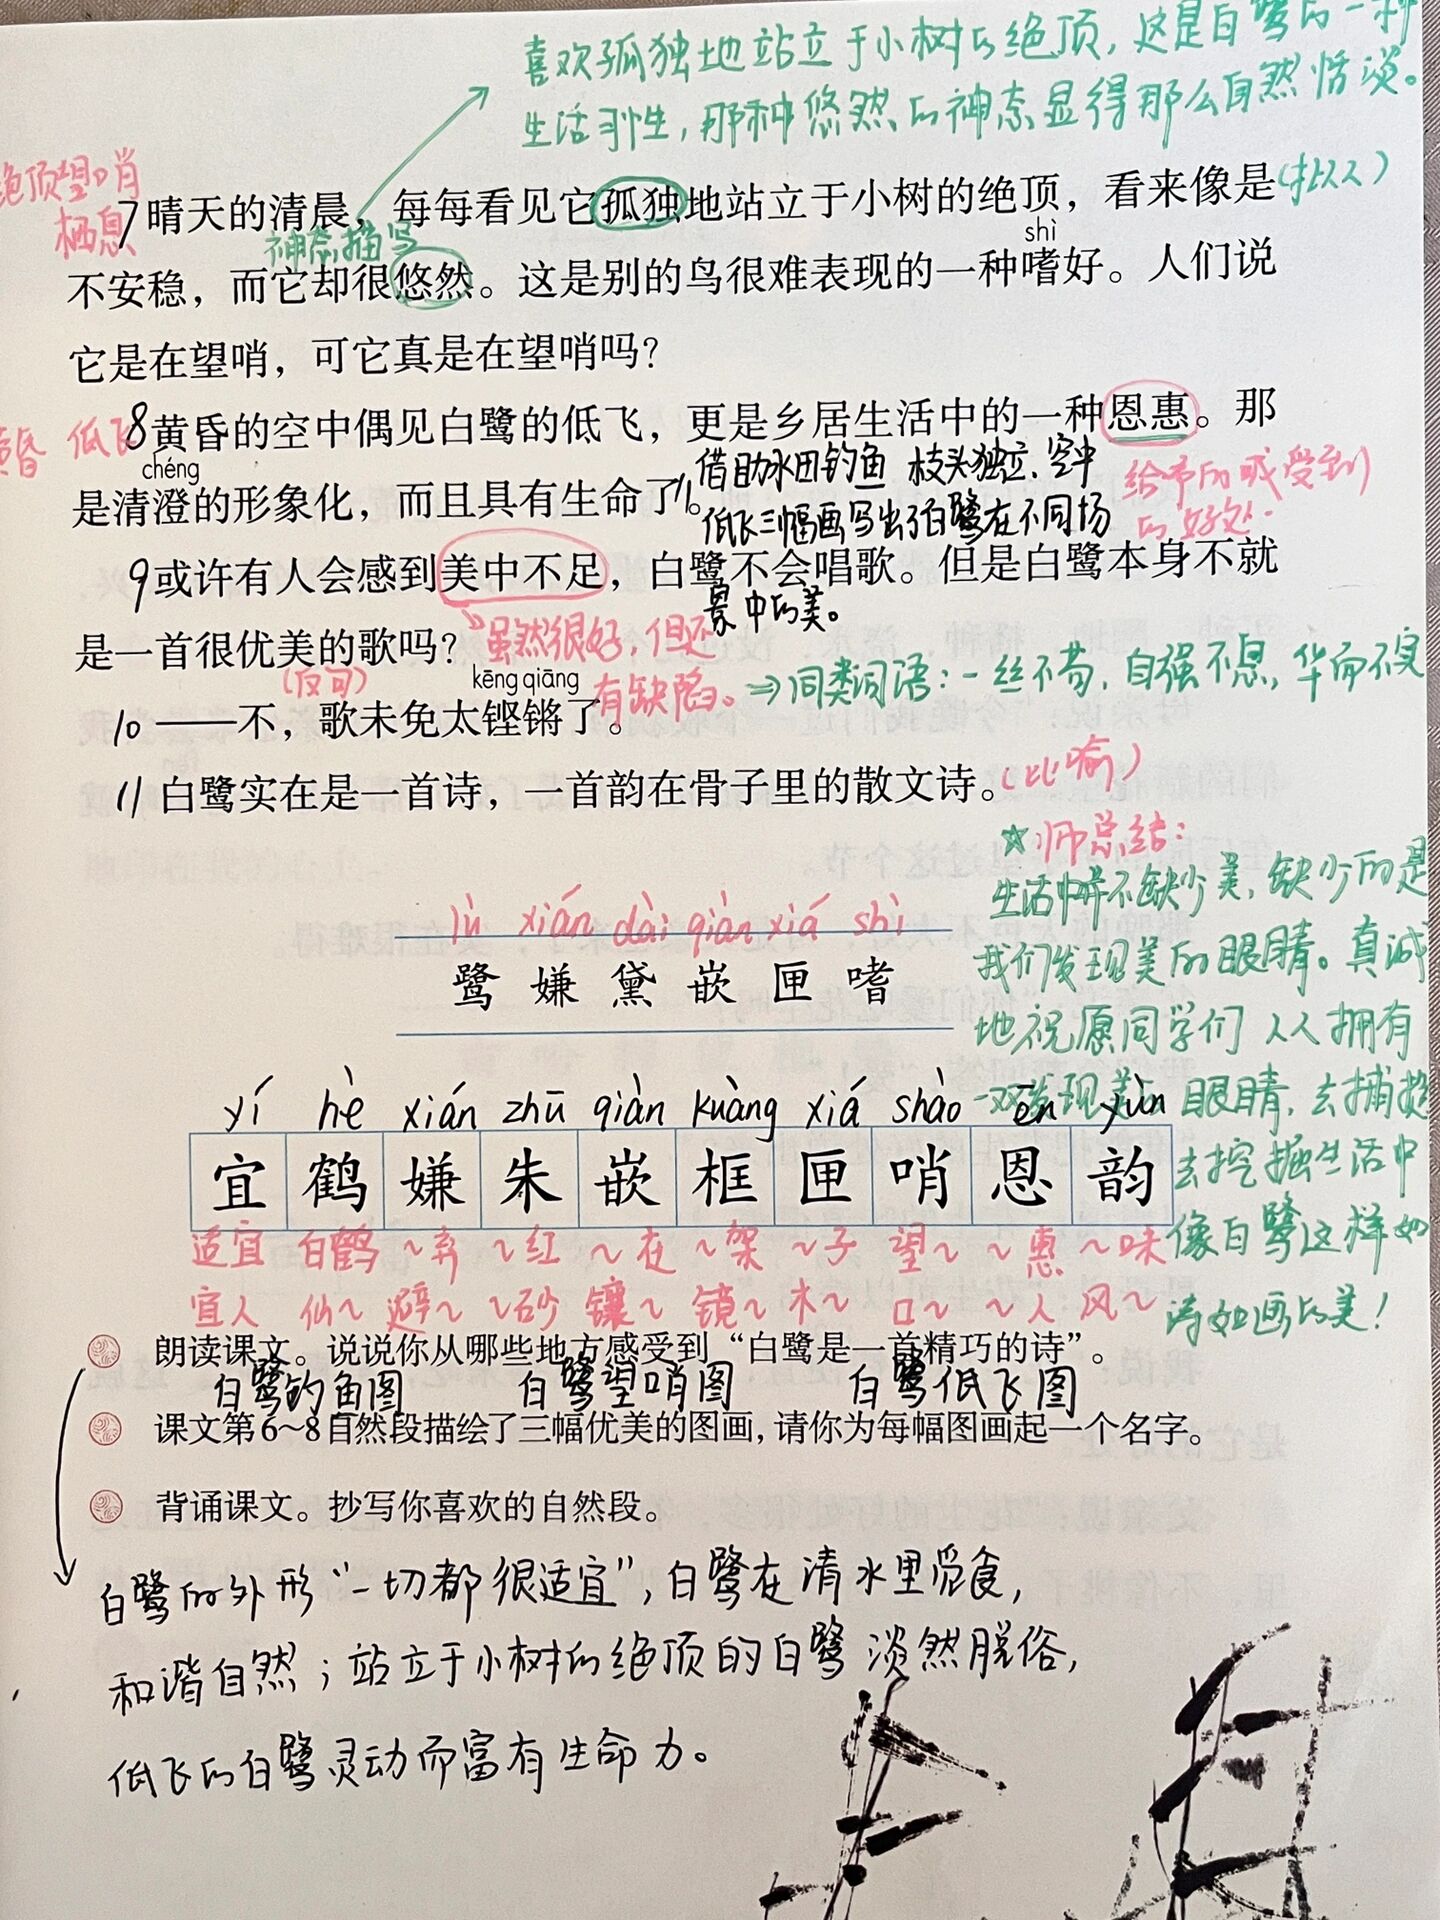 喜欢孤独地站立于小树的绝顶，这是白鹭的一种
生活习性，那种悠然的神态显得那么自然恬淡。
绝顶望哨
栖息
7 晴天的清晨，每每看见它孤独地站立于小树的绝顶，看来像是(拟人)
神态描写
shì
不安稳，而它却很悠然。这是别的鸟很难表现的一种嗜好。人们说
它是在望哨，可它真是在望哨吗？
黄昏 低飞
8 黄昏的空中偶见白鹭的低飞，更是乡居生活中的一种恩惠。那
chéng
是清澄的形象化，而且具有生命了。
借助水田钓鱼 枝头独立、空中
低飞三幅画写出了白鹭在不同场
景中的美。
给予的或受到
的好处.
9 或许有人会感到美中不足，白鹭不会唱歌。但是白鹭本身不就
是一首很优美的歌吗？
(反问)
虽然很好，但还
有缺陷。
⇒同类词语：一丝不苟，自强不息，华而不实
kēng qiāng
10 ——不，歌未免太铿锵了。
11 白鹭实在是一首诗，一首韵在骨子里的散文诗。(比喻)
☆师总结：
生活中并不缺少美，缺少的是
我们发现美的眼睛。真诚
地祝愿同学们 人人拥有
一双发现美的眼睛，去捕捉
去挖掘生活中
像白鹭这样如
诗如画的美！
lù xián dài qiàn xiá shì
鹭 嫌 黛 嵌 匣 嗜
yí hè xián zhū qiàn kuàng xiá shào ēn yùn
宜 鹤 嫌 朱 嵌 框 匣 哨 恩 韵
适宜 白鹤 ~弃 ~红 ~在 ~架 ~子 望~ ~惠 ~味
宜人 仙~ 避~ ~砂 镶~ 镜~ 木~ 口~ ~人 风~
朗读课文。说说你从哪些地方感受到“白鹭是一首精巧的诗”。
白鹭钓鱼图 白鹭望哨图 白鹭低飞图
课文第6~8自然段描绘了三幅优美的图画，请你为每幅图画起一个名字。
背诵课文。抄写你喜欢的自然段。
白鹭的外形“一切都很适宜”，白鹭在清水里觅食，
和谐自然；站立于小树的绝顶的白鹭淡然脱俗，
低飞的白鹭灵动而富有生命力。